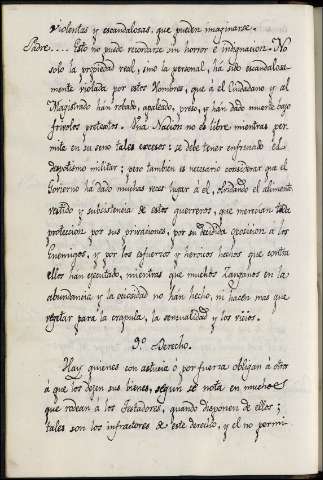 violentas y escandalosas, que pueden imaginarse.
Padre.... Esto no puede recordarse sin horror e indignacion. No
solo la propiedad real, sino la personal, há sido escandalosa-
mente violada por estos Hombres, que á el Ciudadano y al
Magistrado hán robado, apaleado, preso, y hán dado muerte bajo
frivolos pretextos. Una Nacion no es libre mientras per-
mite en su seno tales excesos: se debe tener enfrenado el
despotismo militar; pero tambien es necesario considerar que el
Gobierno há dado muchas veces lugar á el, olvidando el alimento
vestido y subsistencia de estos guerreros, que merecian toda
proteccion por sus privaciones, por su decidida oposicion á los
Enemigos, y por los esfuerzos y heroicos hechos que contra
ellos hán ejecutado, mientras que muchos Zanganos en la
abundancia y la ociosidad no hán hecho, ni hacen mas que
vegetar para la crapula, la sensualidad y los vicios.
9.º Derecho.
Hay quienes con astucia ó por fuerza obligan á otros
á que los dejen sus bienes, segun se nota en muchos
que rodean á los Testadores, quando disponen de ellos;
tales son los infractores de este derecho, y el no permi-